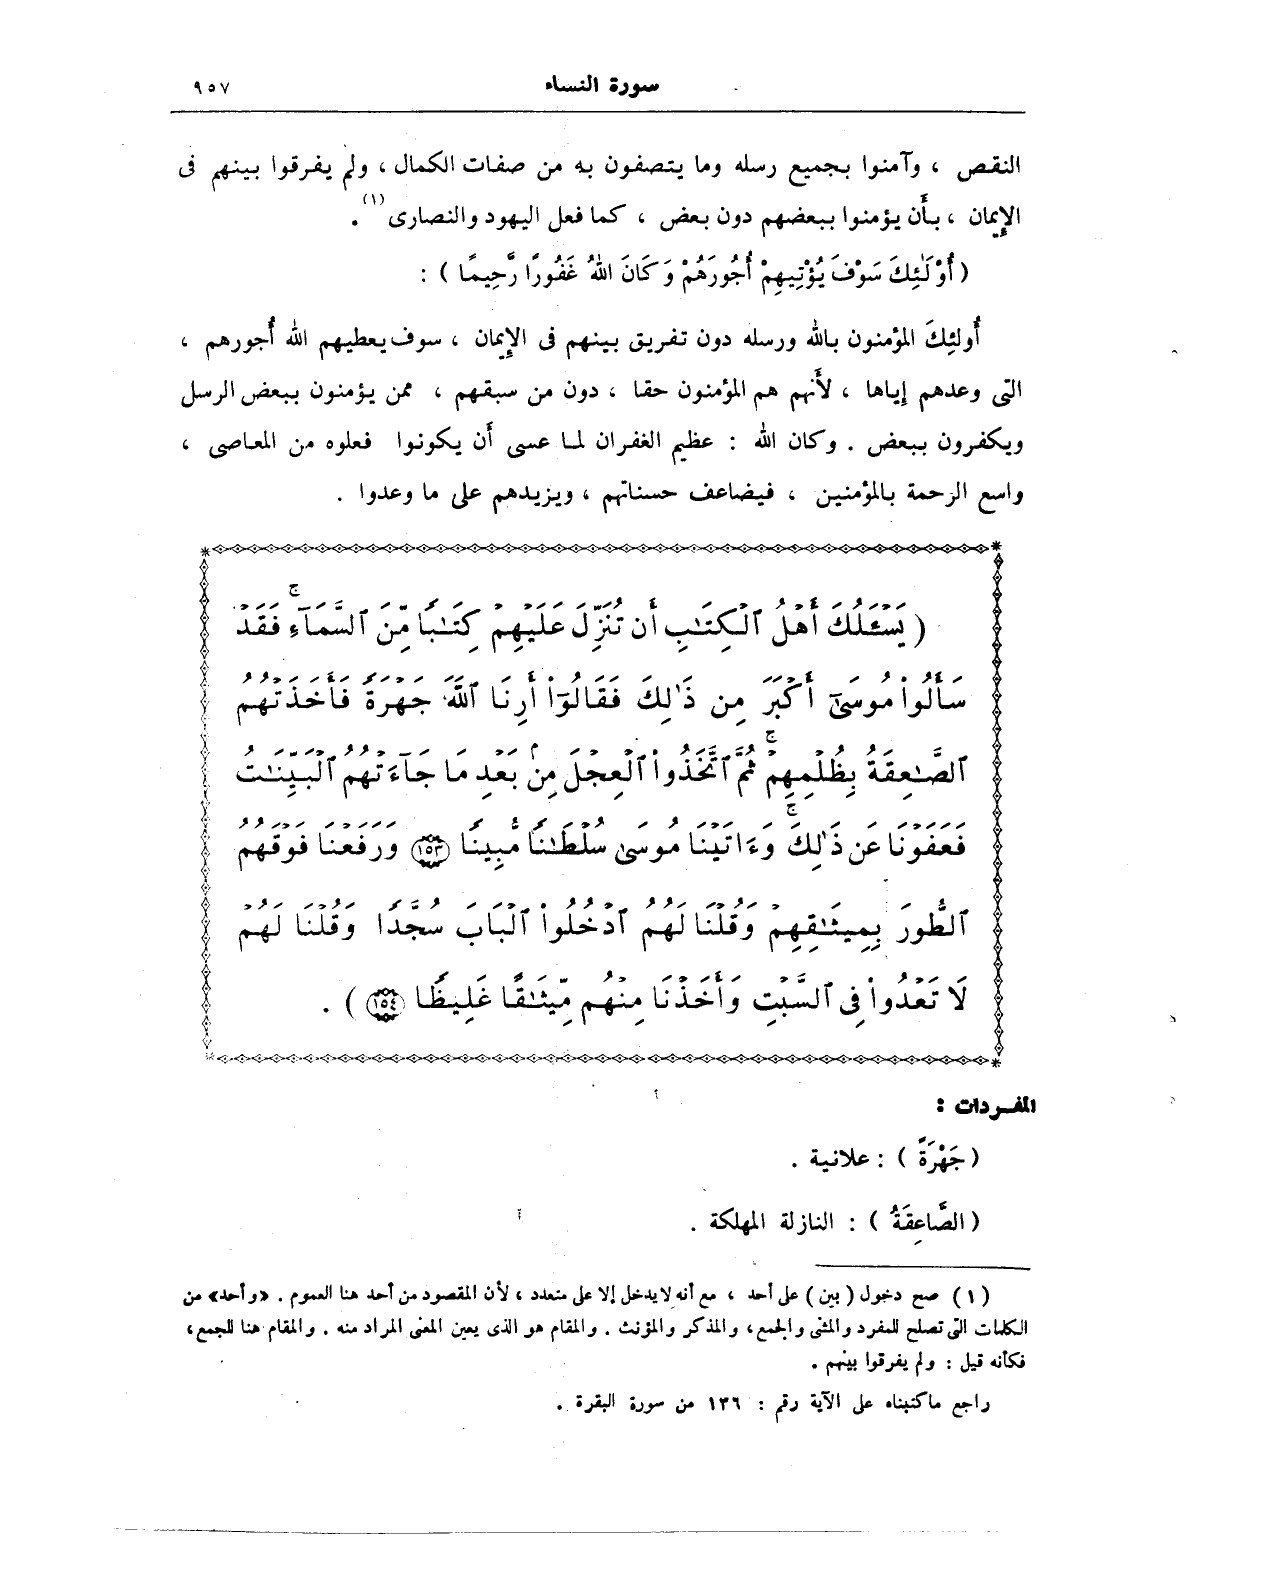 سورة النساء ٩٥٧
النقص ، وآمنوا بجميع رسله وما يتصفون به من صفات الكمال ، ولم يفرقوا بينهم فى
الإيمان ، بأن يؤمنوا ببعضهم دون بعض ، كما فعل اليهود والنصارى (١) .
( أُوْلَٰئِكَ سَوْفَ يُؤْتِيهِمْ أُجُورَهُمْ وَكَانَ اللهُ غَفُورًا رَّحِيمًا ) :
أُولئِكَ المؤمنون بالله ورسله دون تفريق بينهم فى الإيمان ، سوف يعطيهم الله أُجورهم ،
التى وعدهم إياها ، لأَنهم هم المؤمنون حقا ، دون من سبقهم ، ممن يؤمنون ببعض الرسل
ويكفرون ببعض . وكان الله : عظيم الغفران لما عسى أَن يكونوا فعلوه من المعاصى ،
واسع الرحمة بالمؤمنين ، فيضاعف حسناتهم ، ويزيدهم على ما وعدوا .
( يَسْـَٔلُكَ أَهْلُ ٱلْكِتَٰبِ أَن تُنَزِّلَ عَلَيْهِمْ كِتَٰبًا مِّنَ ٱلسَّمَآءِ ۚ فَقَدْ
سَأَلُوا۟ مُوسَىٰٓ أَكْبَرَ مِن ذَٰلِكَ فَقَالُوٓا۟ أَرِنَا ٱللَّهَ جَهْرَةً فَأَخَذَتْهُمُ
ٱلصَّٰعِقَةُ بِظُلْمِهِمْ ۚ ثُمَّ ٱتَّخَذُوا۟ ٱلْعِجْلَ مِنۢ بَعْدِ مَا جَآءَتْهُمُ ٱلْبَيِّنَٰتُ
فَعَفَوْنَا عَن ذَٰلِكَ ۚ وَءَاتَيْنَا مُوسَىٰ سُلْطَٰنًا مُّبِينًا ١٥٣ وَرَفَعْنَا فَوْقَهُمُ
ٱلطُّورَ بِمِيثَٰقِهِمْ وَقُلْنَا لَهُمُ ٱدْخُلُوا۟ ٱلْبَابَ سُجَّدًا وَقُلْنَا لَهُمْ
لَا تَعْدُوا۟ فِى ٱلسَّبْتِ وَأَخَذْنَا مِنْهُم مِّيثَٰقًا غَلِيظًا ١٥٤ ) .
المفردات :
( جَهْرَةً ) : علانية .
( الصَّاعِقَةُ ) : النازلة المهلكة .
(١) صح دخول (بين) على أحد ، مع أنه لا يدخل إلا على متعدد ، لأن المقصود من أحد هنا العموم . «وأحد» من
الكلمات التى تصلح للمفرد والمثنى والجمع، والمذكر والمؤنث . والمقام هو الذى يعين المعنى المراد منه . والمقام هنا للجمع،
فكأنه قيل : ولم يفرقوا بينهم .
راجع ماكتبناه على الآية رقم : ١٣٦ من سورة البقرة .